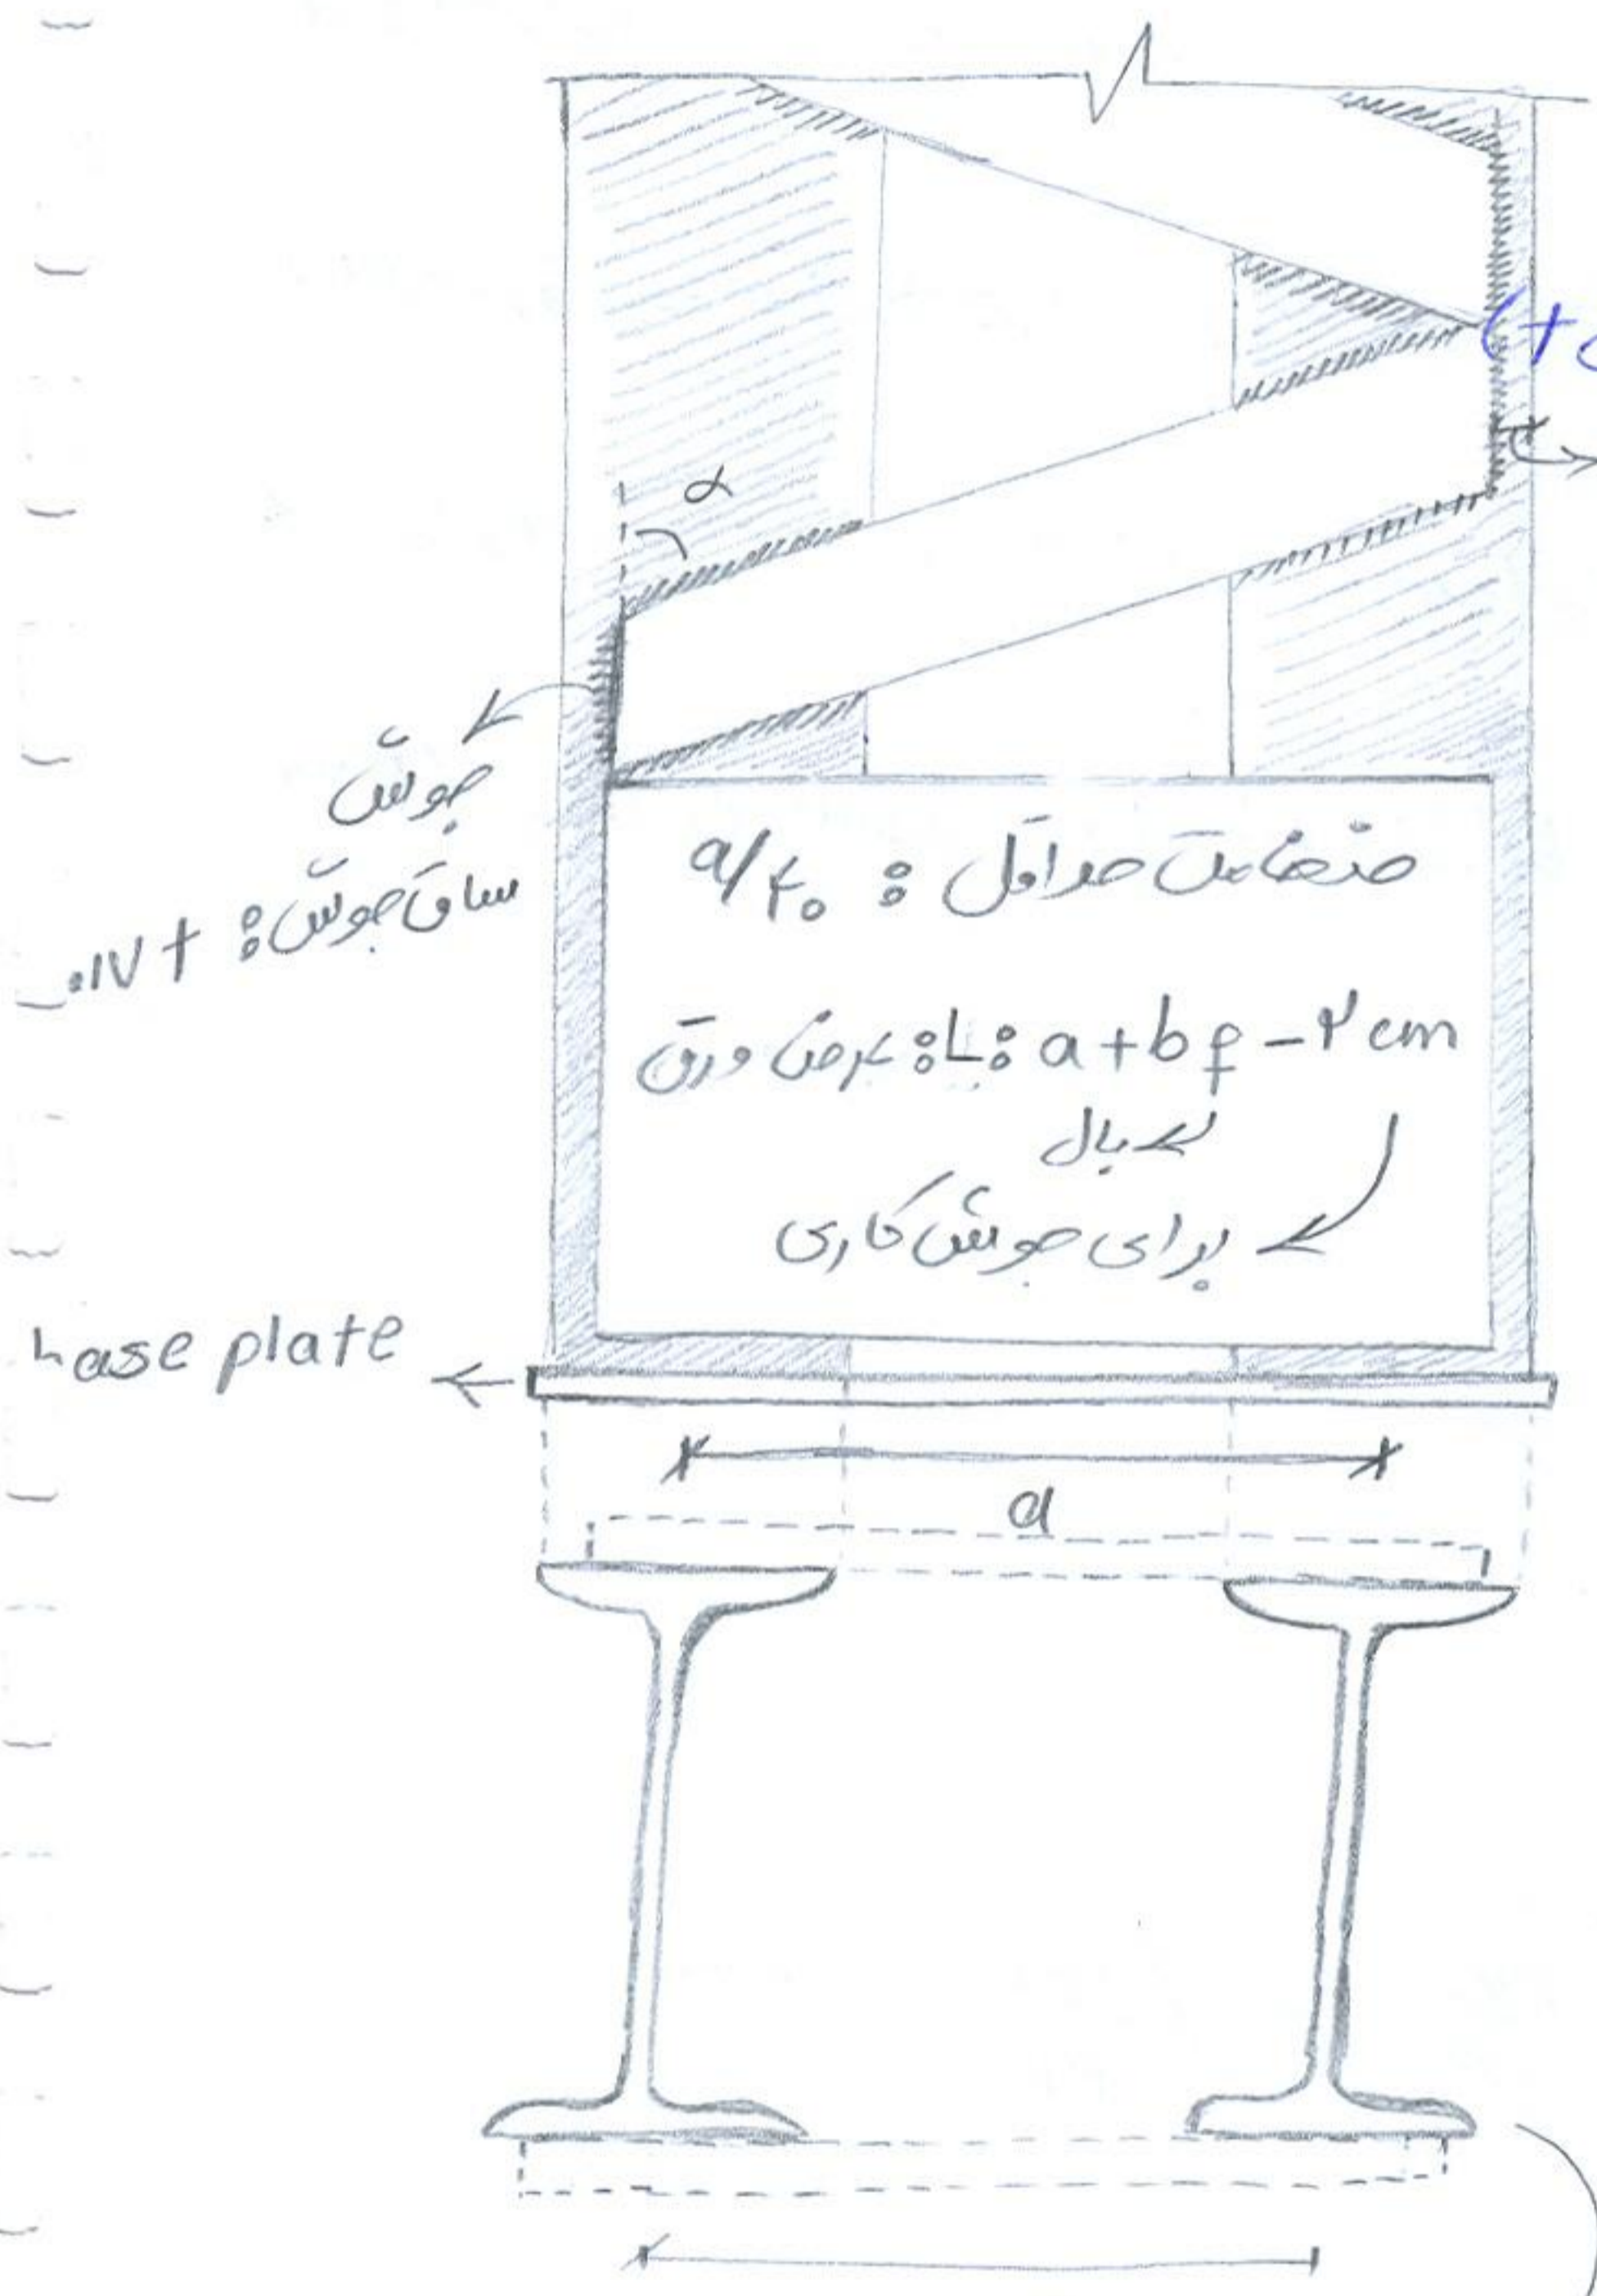 α
جوش
ساق جوش: ۰/۷ t
ضخامت حداقل : a/۴۰
عرض ورق :L: a+bf -۲ cm
بال
برای جوش کاری
base plate
a